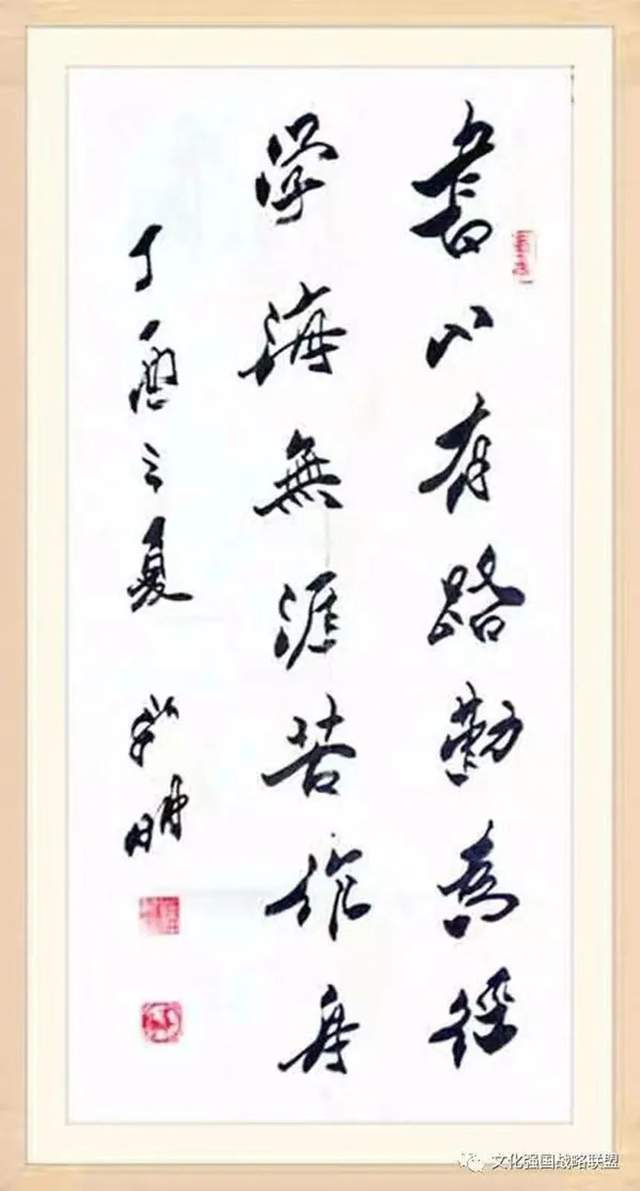 書山有路勤為徑
学海無涯苦作舟
丁酉之夏 明
文化强国战略联盟